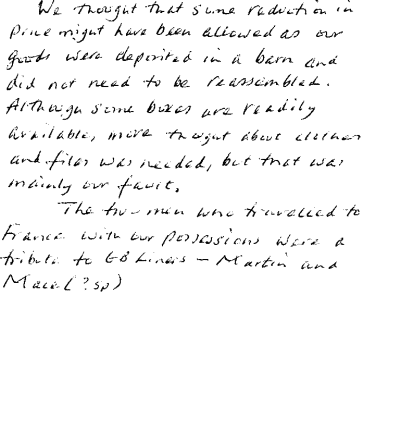 We thought that some reduction in
price might have been allowed as our
goods were deposited in a barn and
did not need to be reassembled.
Although some boxes are readily
available, more thought about clothes
and files was needed, but that was
mainly our fault.
The two men who travelled to
France with our possessions were a
tribute to GB Liners – Martin and
(?sp)